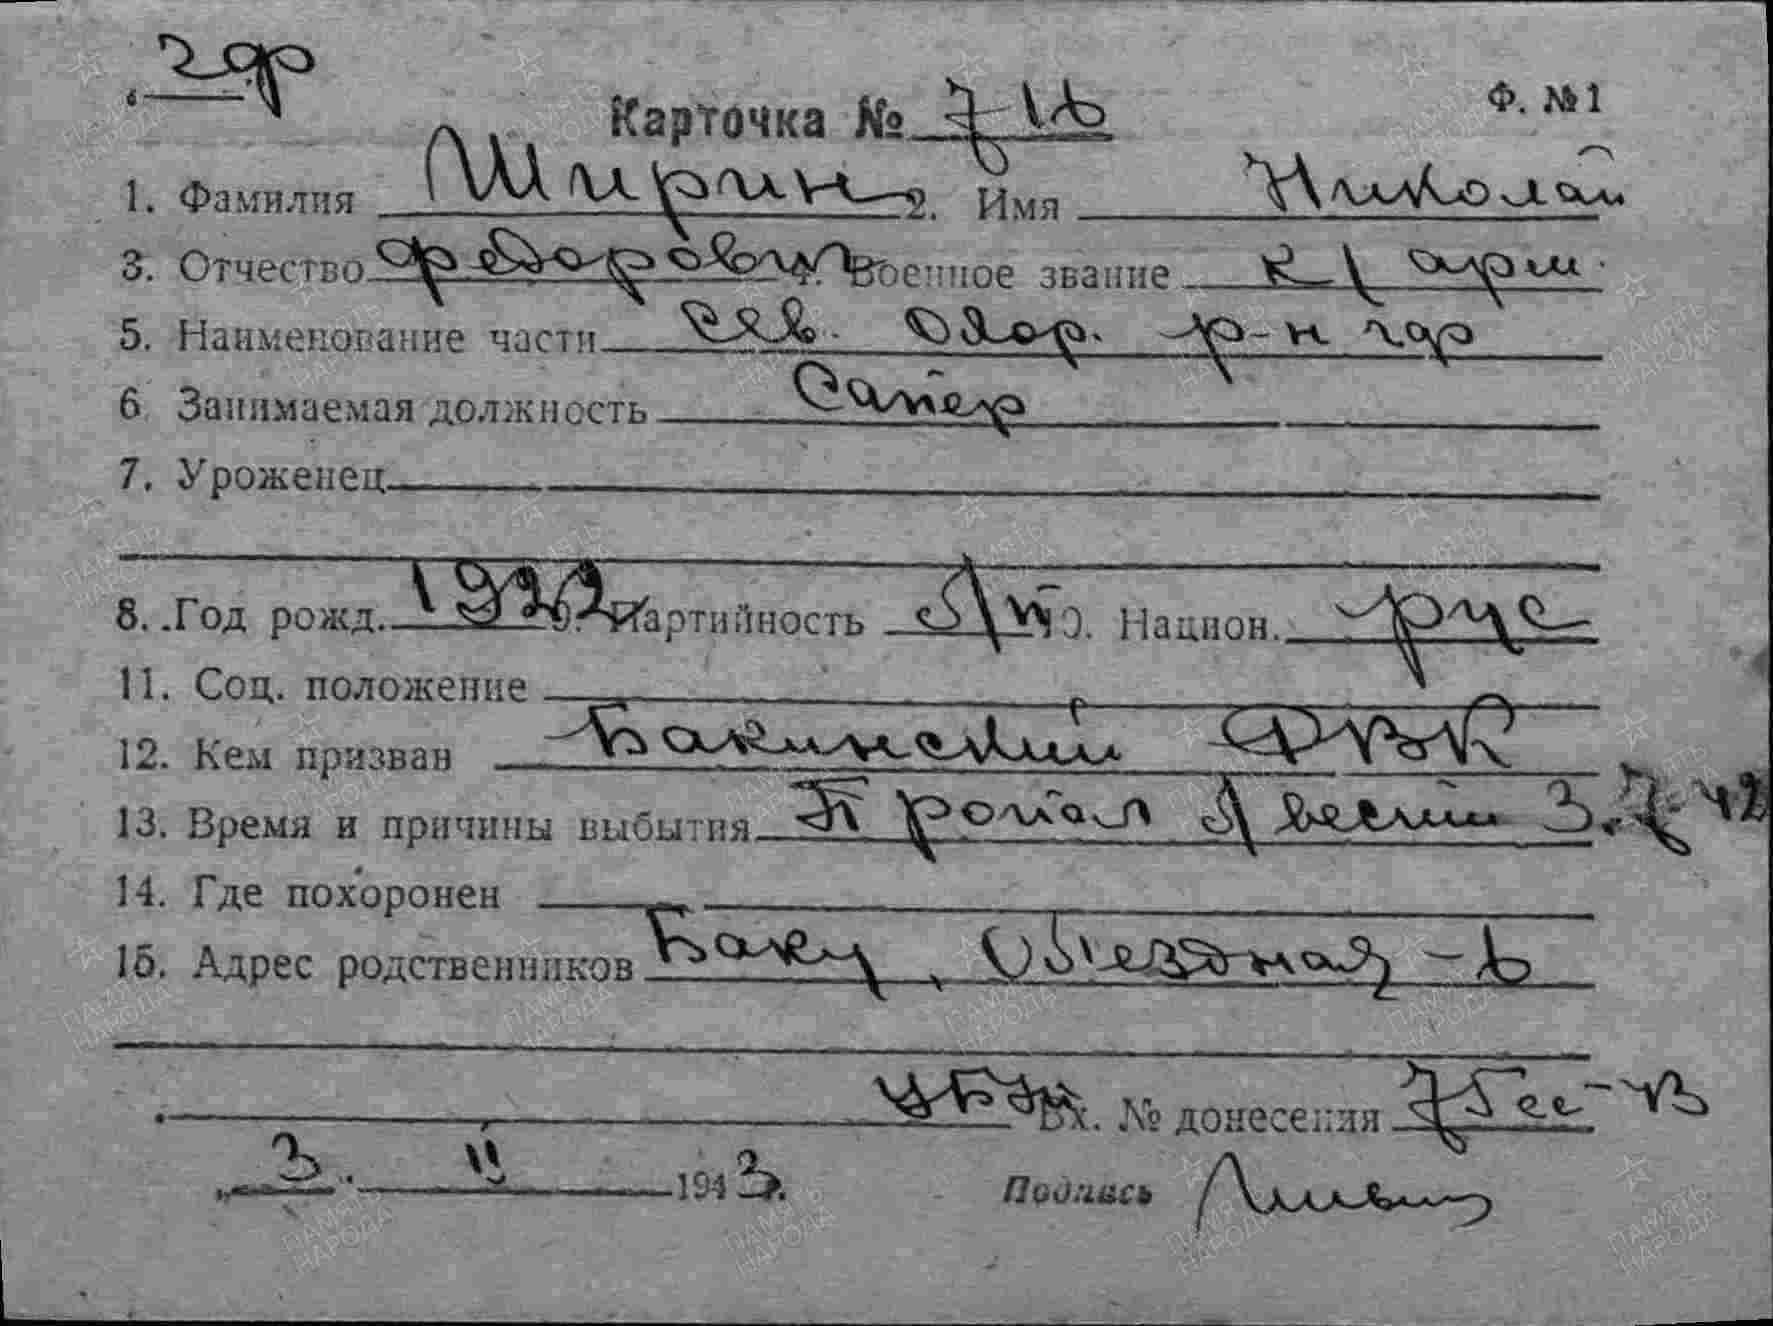 ГДР
Карточка № 716 Ф. №1
1. Фамилия Ширин 2. Имя Николай
3. Отчество Федорович 4. Военное звание к/арм.
5. Наименование части Сев. Обор. р-н ЧФ
6 Занимаемая должность Сапер
7. Уроженец
8. Год рожд. 1922 9. Партийность 10. Национ. рус
11. Соц. положение
12. Кем призван Бакинский РВК
13. Время и причины выбытия Пропал без вести 3.7.42
14. Где похоронен
15. Адрес родственников Баку, Объездная-6
Вх. № донесения
3. II 1943.
Подпись